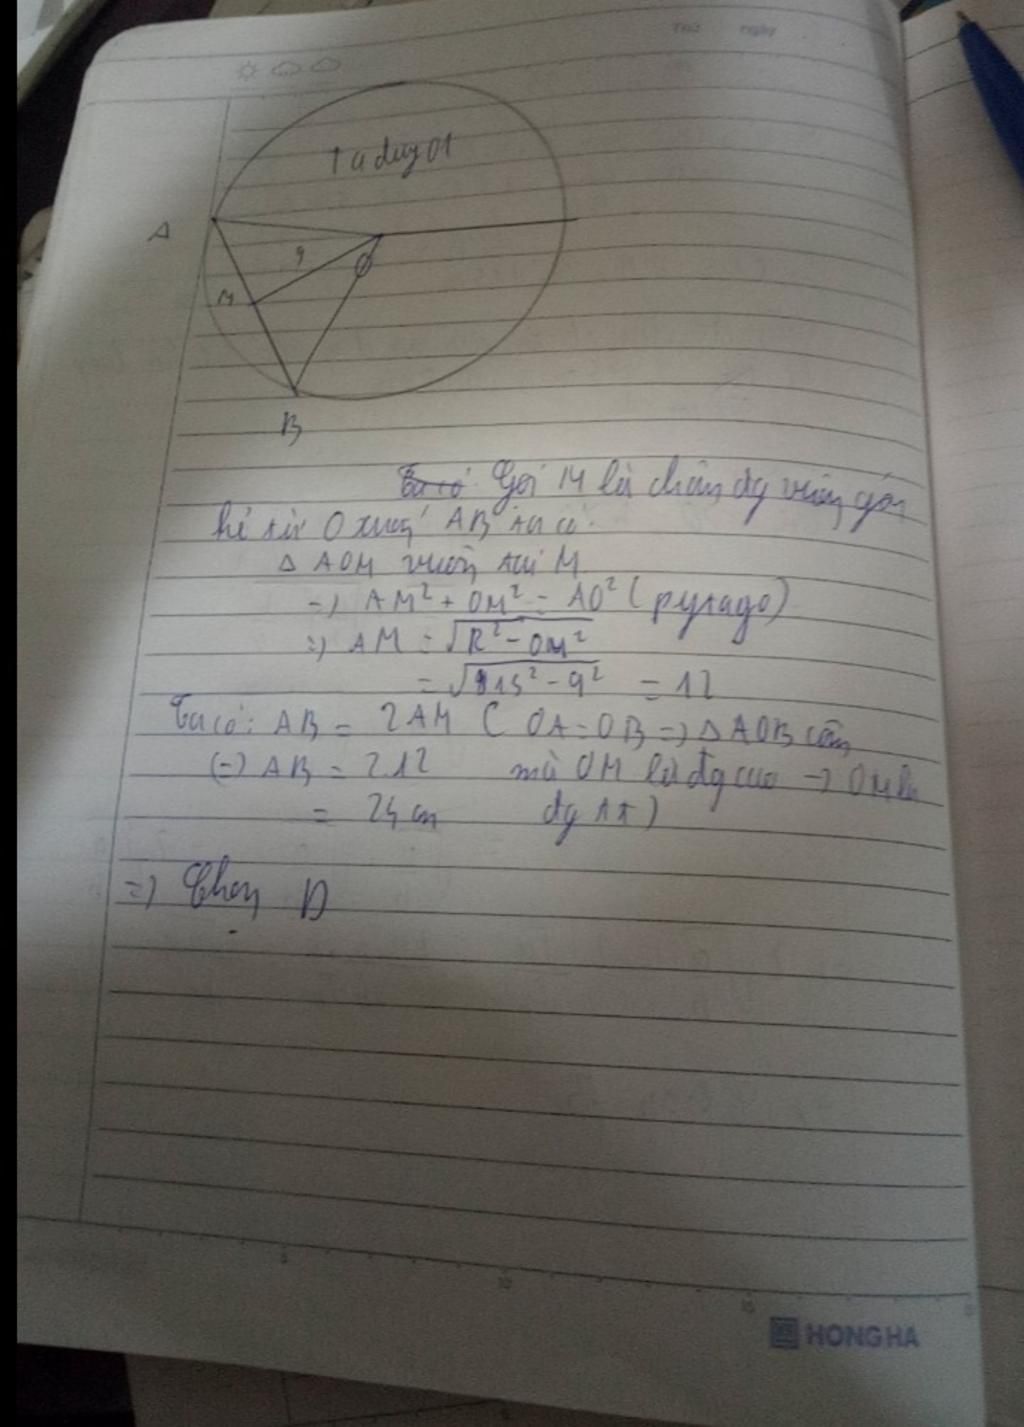 Thứ ngày
1 a duy 01
A
9
O
M
B
Ta có Gọi M là chân đg vuông góc
kẻ từ O xuống AB ta có
Δ AOM vuông tại M
=> AM² + OM² = AO² (pytago)
=> AM = √R² - OM²
= √15² - 9² = 12
Ta có: AB = 2AM ( OA = OB => Δ AOB cân
(=) AB = 2.12 mà OM là đg cao → OM là
= 24 cm đg tt )
=> Chọn D
5 10 15
HONG HA